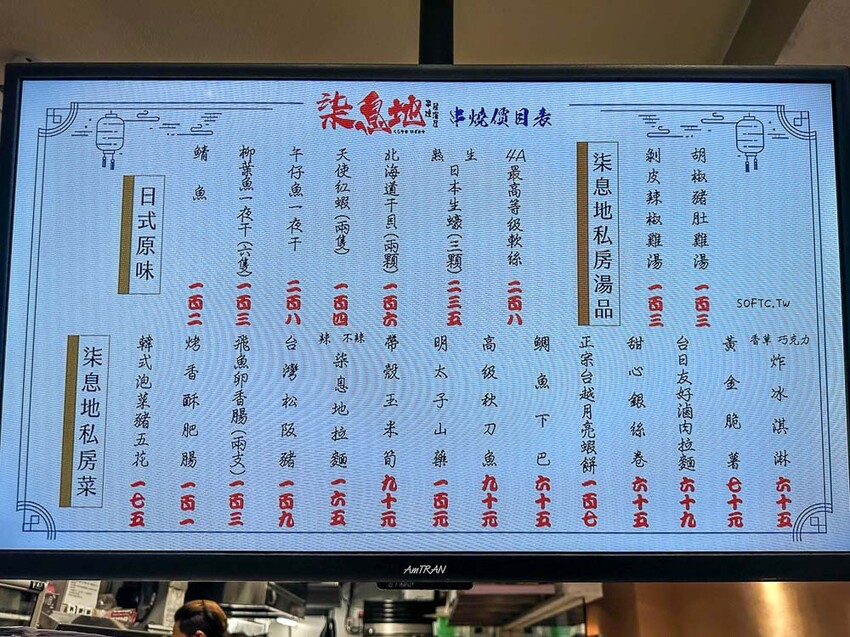 柒息地
串燒價目表
柒息地私房湯品
胡椒豬肚雞湯 一百三
剝皮辣椒雞湯 一百三
SOFTC.TW
日式原味
4A最高等級軟絲 二百八
熟 生
日本生蠔(三顆) 二三五
北海道干貝(兩顆) 一百六
天使紅蝦(兩隻) 一百四
午仔魚一夜干 二百八
柳葉魚一夜干(六隻) 一百三
鯖魚 一百二
香草 巧克力
炸冰淇淋 六十五
黃金脆薯 七十元
台日友好滷肉拉麵 六十九
甜心銀絲卷 六十五
正宗台越月亮蝦餅 一百七
鯛魚下巴 六十五
高級秋刀魚 九十元
明太子山藥 一百元
帶殼玉米筍 九十元
辣 不辣
柒息地拉麵 一六五
台灣松阪豬 一百九
飛魚卵香腸(兩支) 一百三
烤香酥肥腸 一百一
韓式泡菜豬五花 一七五
柒息地私房菜
AmTRAN